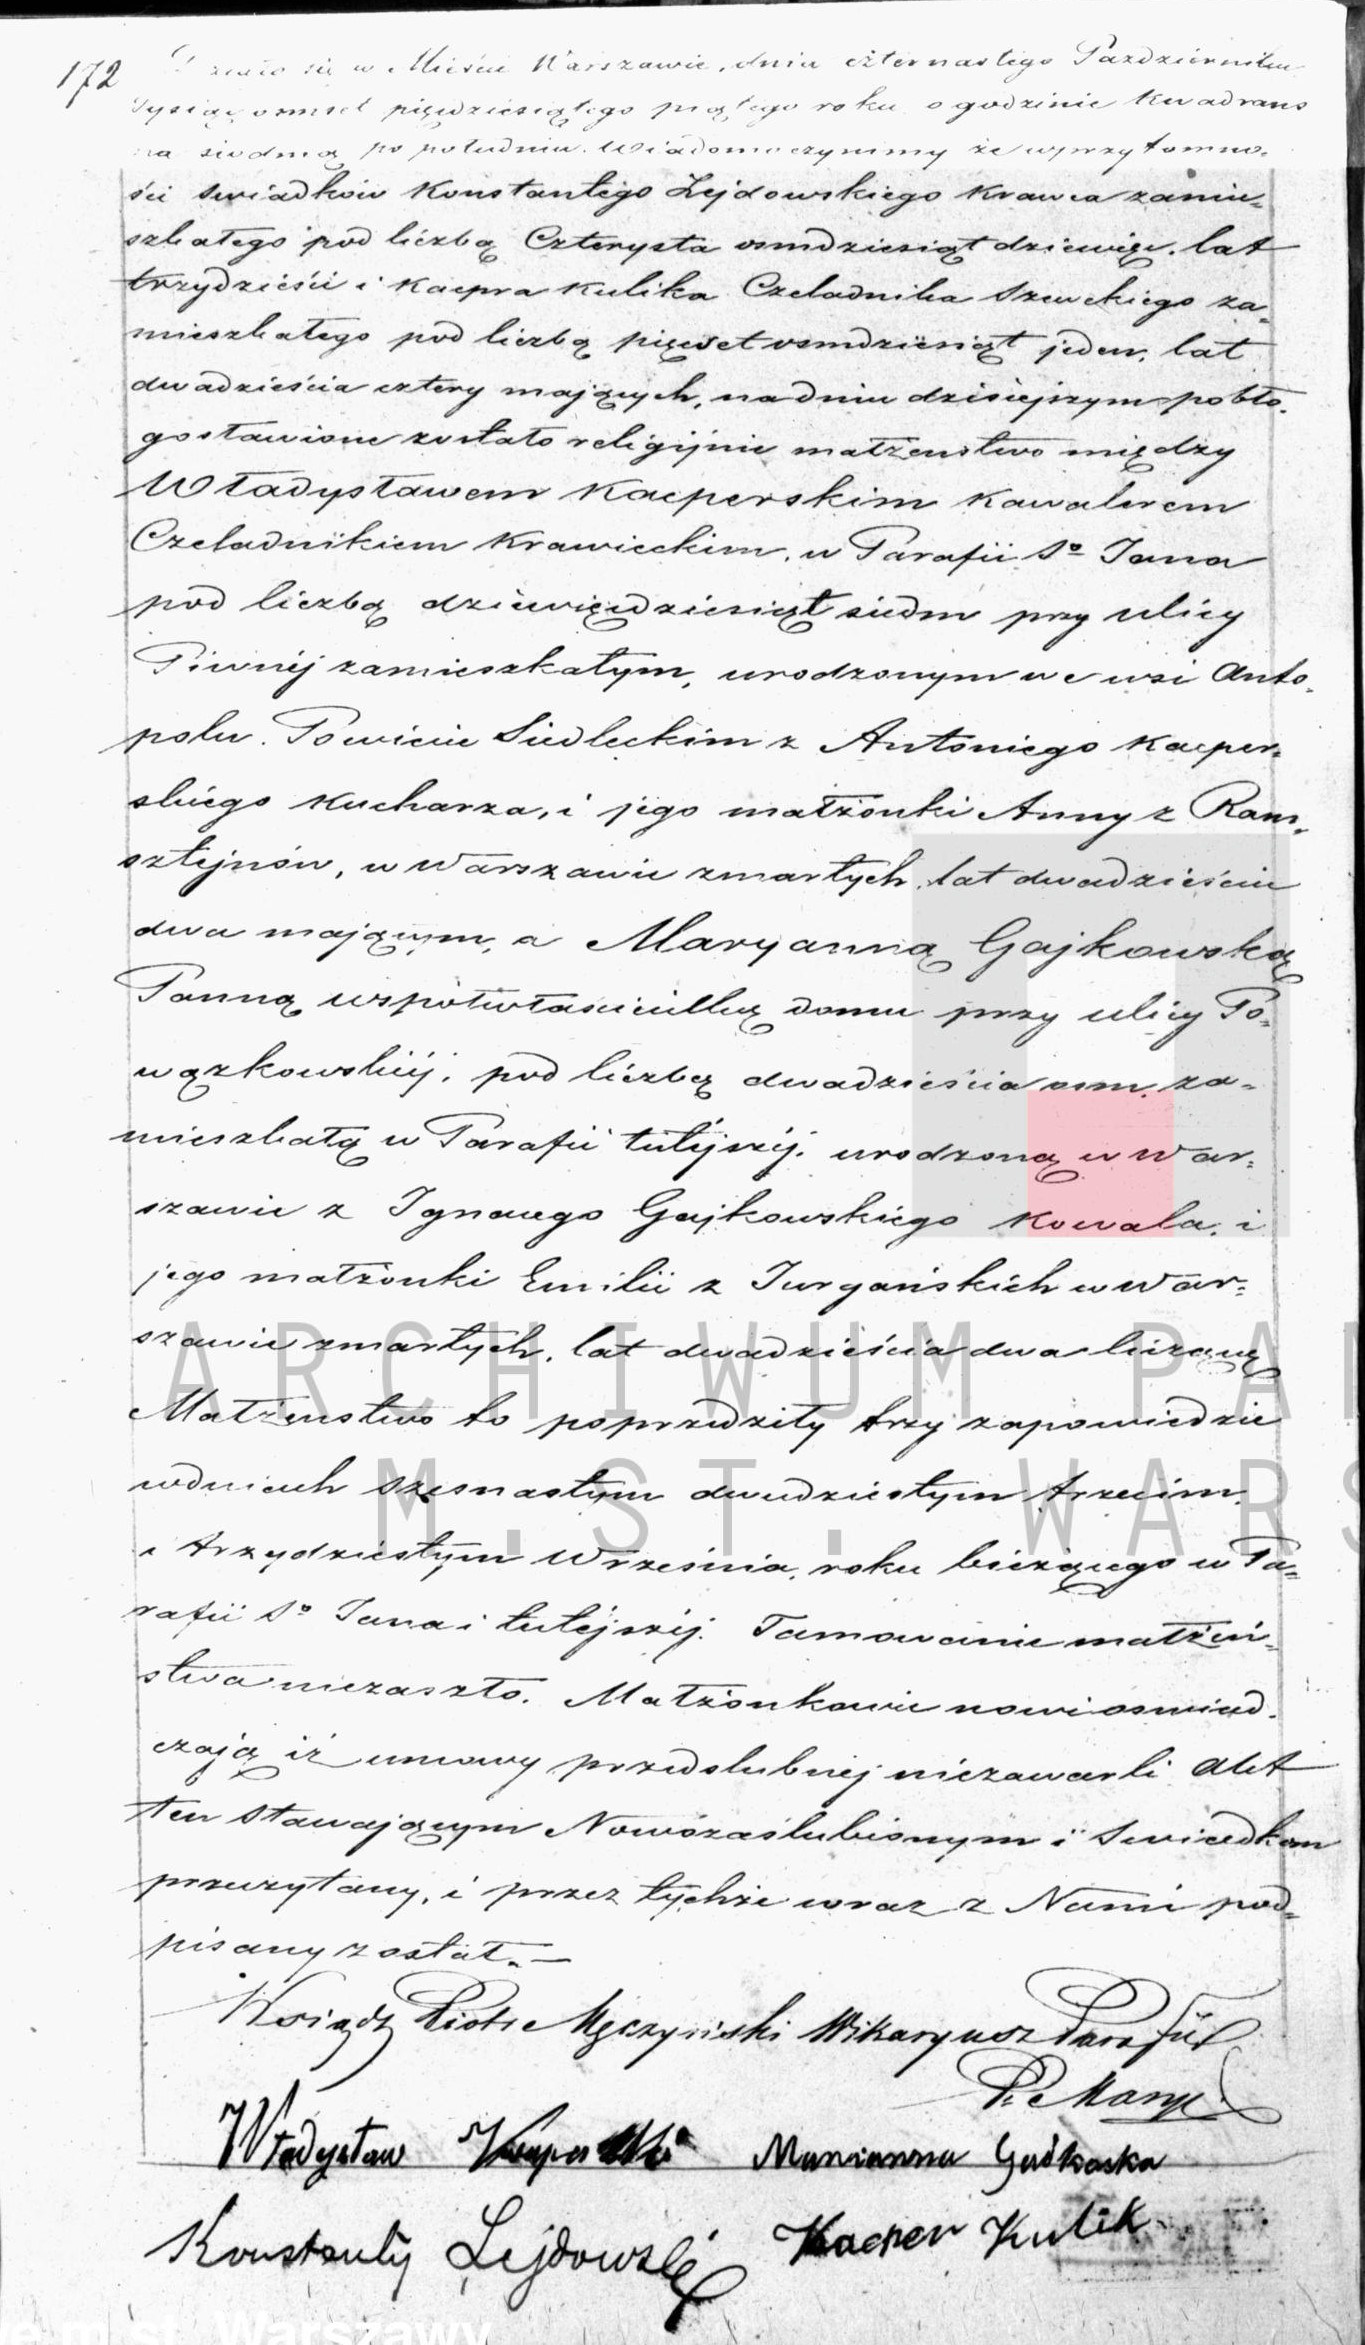 172
Działo się w Mieście Warszawie, dnia czternastego Pazdziernika
tysiąc osmset pięćdziesiątego piątego roku o godzinie kwadrans
na siodmą po południu. Wiadomo czynimy że w przytomno-
ści swiadków Konstantego Lejdowskiego Krawca zamie-
szkałego pod liczbą Czterysta osmdziesiąt dziewięć, lat
trzydzieści i Kacpra Kulika Czeladnika Szewckiego za-
mieszkałego pod liczbą pięćset osmdziesiąt jeden, lat
dwadzieścia cztery mających, na dniu dzisiejszym pobło-
gosławione zostało religijnie małżenstwo między
Władysławem Kacperskim Kawalerem
Czeladnikiem Krawieckim, w Parafii So Jana
pod liczbą dziewięćdziesiąt siedm przy ulicy
Piwnéj zamieszkałym, urodzonym we wsi Anto-
polu. Powiecie Siedleckim z Antoniego Kacper-
skiego Kucharza, i jego małżonki Anny z Ram-
sztejnów, w Warszawie zmarłych, lat dwadzieścia
dwa mającym, a Maryanną Gajkowską
Panną współwłaścicielką domu przy ulicy Po-
wązkowskiéj, pod liczbą dwadzieścia osm, za-
mieszkałą w Parafii tutéjszéj, urodzoną w War-
szawie z Ignacego Gajkowskiego Kowala, i
jego małżonki Emilii z Jurgańskich w War-
szawie zmarłych, lat dwadzieścia dwa liczącą
Małżenstwo to poprzedziły trzy zapowiedzie
w dniach szesnastym dwudziestym trzecim
i trzydziestym Września, roku bieżącego w Pa-
rafii So Jana i tutéjszéj. Tamowanie małżeń-
stwa niezaszło. Małżonkowie nowi oswiad-
czają iż umowy przedslubnej niezawarli. Akt
ten stawającym Nowozaślubionym i Swiadkom
przeczytany, i przez tychże wraz z Nami pod-
pisany został. —
Ksiądz Piotr Męczyński Wikaryusz Parafii
P. Maryi
Władysław Kacperski Marianna Gaikoska
Konstanty Lejdowski Kacper Kulik
ARCHIWUM PAŃ
M. ST. WARS
e m.st. Warszawy